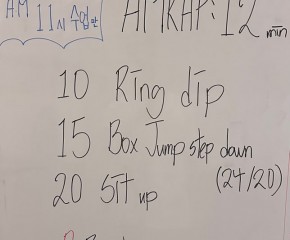 AM 11시 수업만
AMRAP: 12 min
10 Ring dip
15 Box Jump step down
(24/20)
20 Sit up